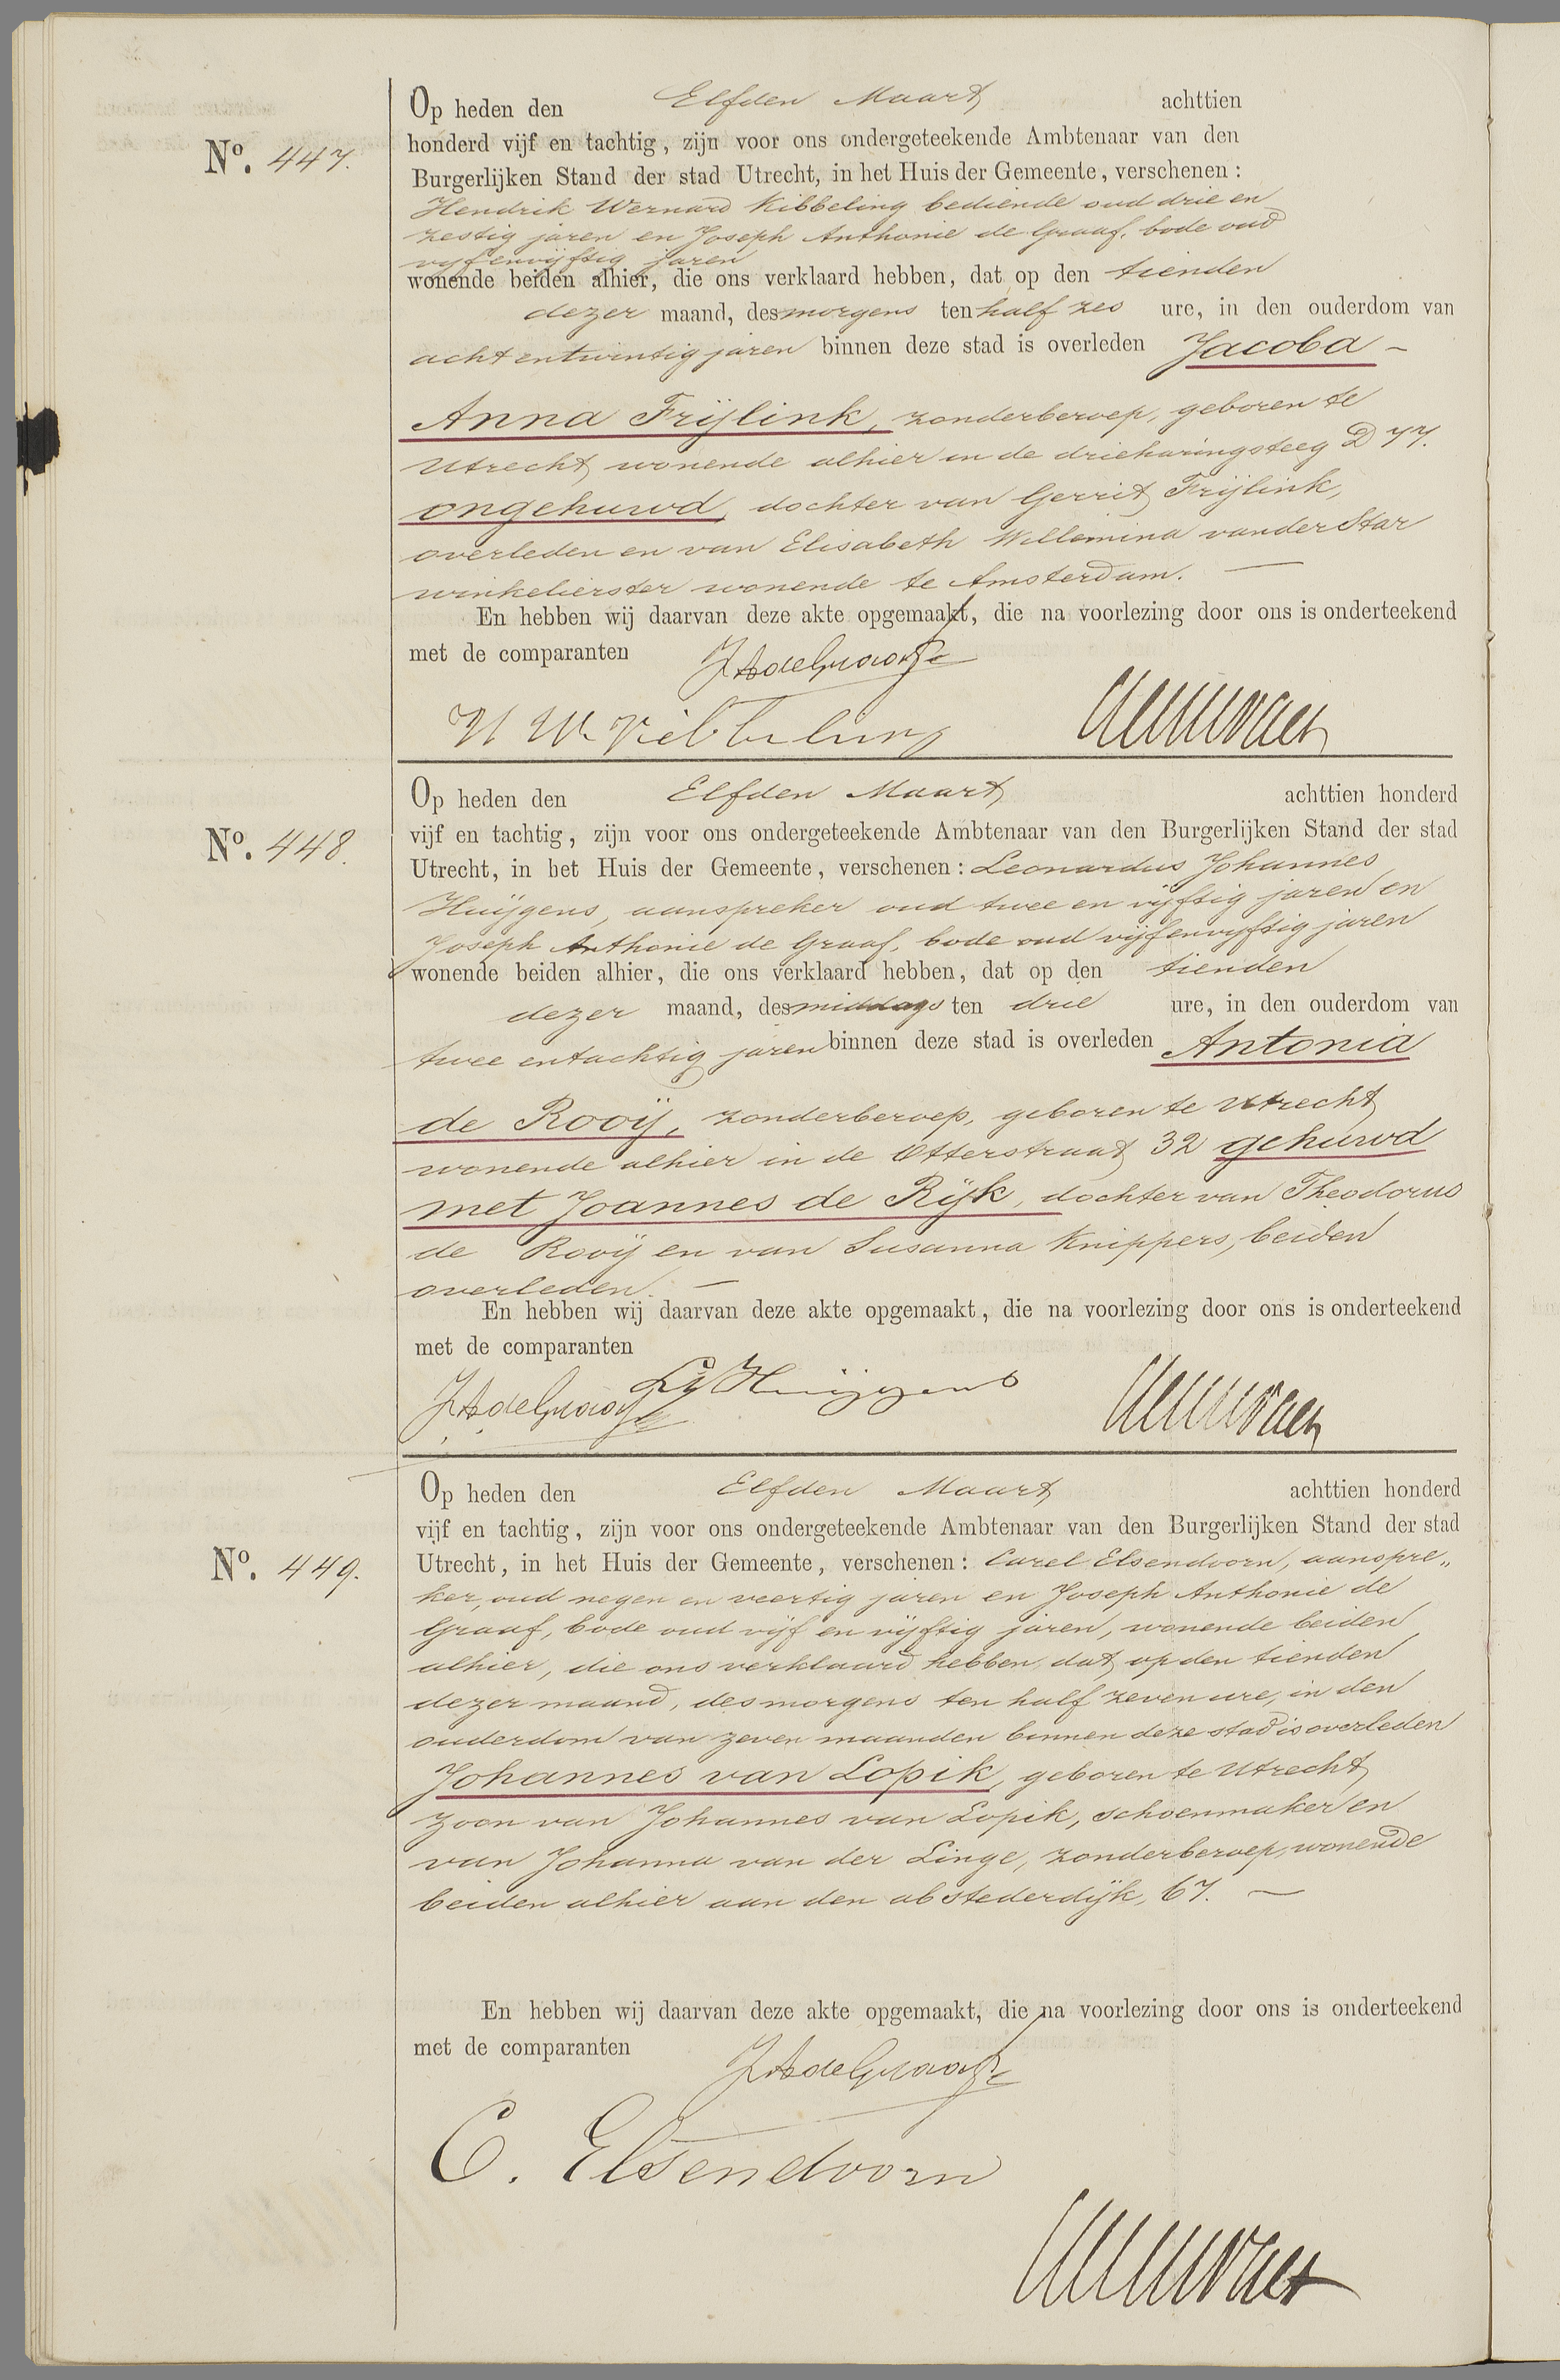 Op heden den Elfden Maart achttien
No. 447. honderd vijf en tachtig, zijn voor ons ondergeteekende Ambtenaar van den
Burgerlijken Stand der stad Utrecht, in het Huis der Gemeente, verschenen:
Hendrik Wernard Kibbeling bediende oud drie en
zestig jaren en Joseph Anthonie de Graaf, bode oud
vijfenvijftig jaren
wonende beiden alhier, die ons verklaard hebben, dat op den tienden
dezer maand, des morgens ten half zes ure, in den ouderdom van
acht entwintig jaren binnen deze stad is overleden Jacoba –
Anna Frijlink, zonderberoep, geboren te
Utrecht, wonende alhier in de drieharingsteeg D 77.
ongehuwd, dochter van Gerrit Frijlink,
overleden en van Elisabeth Willemina vander Star
winkelierster wonende te Amsterdam. —
En hebben wij daarvan deze akte opgemaakt, die na voorlezing door ons is onderteekend
met de comparanten JAdeGraaf
H W Kibbeling
Op heden den Elfden Maart achttien honderd
No. 448. vijf en tachtig, zijn voor ons ondergeteekende Ambtenaar van den Burgerlijken Stand der stad
Utrecht, in het Huis der Gemeente, verschenen: Leonardus Johannes
Huijgens, aanspreker oud twee en vijftig jaren en
Joseph Anthonie de Graaf, bode oud vijfenvijftig jaren
wonende beiden alhier, die ons verklaard hebben, dat op den tienden
dezer maand, des middags ten drie ure, in den ouderdom van
twee entachtig jaren binnen deze stad is overleden Antonia
de Rooij, zonderberoep, geboren te Utrecht
wonende alhier in de Otterstraat 32 gehuwd
met Joannes de Rijk, dochter van Theodorus
de Rooij en van Susanna Knippers, beiden
overleden. —
En hebben wij daarvan deze akte opgemaakt, die na voorlezing door ons is onderteekend
met de comparanten
JAdeGraaf LJ Huijgens
Op heden den Elfden Maart achttien honderd
vijf en tachtig, zijn voor ons ondergeteekende Ambtenaar van den Burgerlijken Stand der stad
No. 449. Utrecht, in het Huis der Gemeente, verschenen: Carel Elsendoorn, aanspre„
ker, oud negen en veertig jaren en Joseph Anthonie de
Graaf, bode oud vijf en vijftig jaren, wonende beiden
alhier, die ons verklaard hebben, dat op den tienden
dezer maand, des morgens ten half zeven ure, in den
ouderdom van zeven maanden binnen deze stad is overleden
Johannes van Lopik, geboren te Utrecht,
zoon van Johannes van Lopik, schoenmaker en
van Johanna van der Linge, zonderberoep, wonende
beiden alhier aan den abstederdijk, 67. —
En hebben wij daarvan deze akte opgemaakt, die na voorlezing door ons is onderteekend
met de comparanten JAdeGraaf
C. Elsendoorn